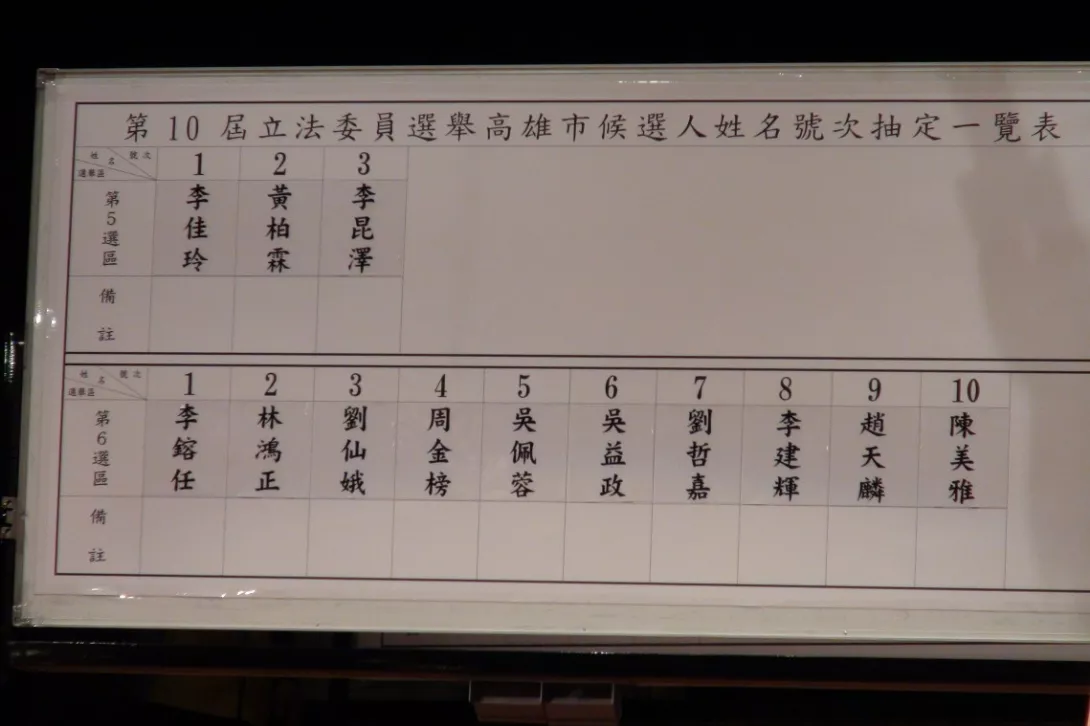 第10屆立法委員選舉高雄市候選人姓名號次抽定一覽表
姓名 號次 選舉區 1 2 3
第5選區 李佳玲 黃柏霖 李昆澤
備註
姓名 號次 選舉區 1 2 3 4 5 6 7 8 9 10
第6選區 李鎔任 林鴻正 劉仙娥 周金榜 吳佩蓉 吳益政 劉哲嘉 李建輝 趙天麟 陳美雅
備註